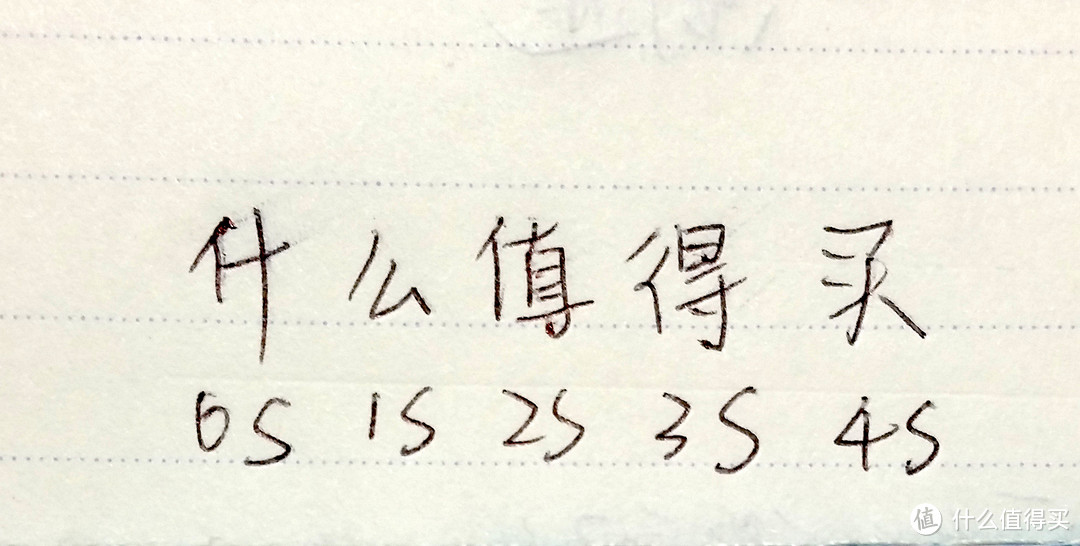 什么值得买
0S 1S 2S 3S 4S
值 什么值得买